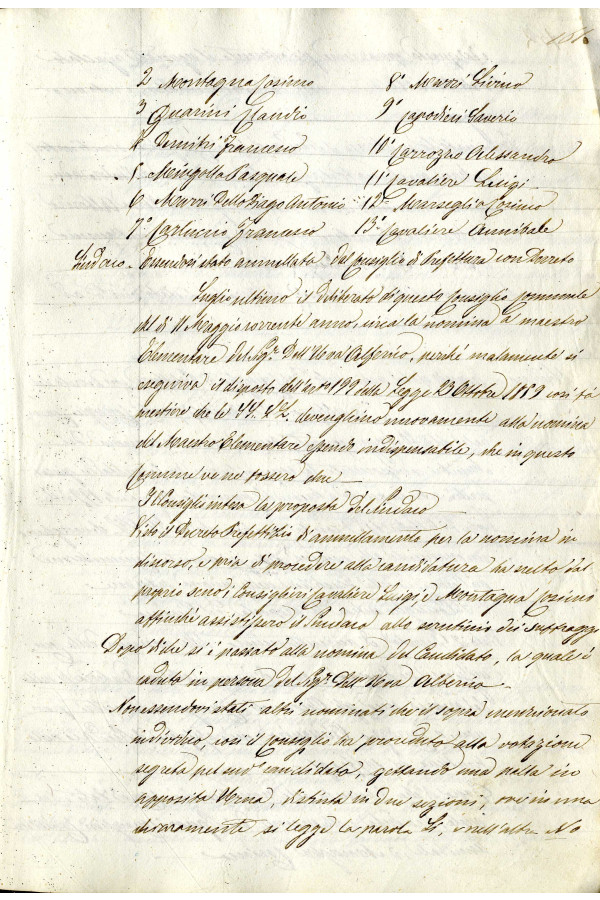 2 Montagna Cosimo 8° Muzzi Livino
3 Guarini Claudio 9° Capodieci Saverio
4 Demitri Francesco 10° Carrozzo Alessandro
5. Mingolla Pasquale 11° Cavaliere Luigi
6 Muzzi Dello Biago Antonio 12° Marseglia Cosimo
7° Carluccio Francesco 13° Cavaliere Annibale
Sindaco - Essendosi stato annullata dal Consiglio di Prefettura con Decreto
Luglio ultimo il deliberato di questo Consiglio Comunale
del dì 11 Maggio corrente anno, circa la nomina a maestro
Elementare del Sigr. Dell'Uva Alberico, perché malamente si
eseguiva il disposto dell'art° 199 della Legge 23 Ottobre 1859 così fa
mestiere che le SS. LL. devenghino nuovamente alla nomina
del Maestro Elementare essendo indispensabile, che in questo
Comune ve ne fossero due
Il Consiglio intesa la proposta del Sindaco
Visto il Decreto Prefettizio di annullamento per la nomina in
discorso, e pria di procedere alla candidatura ha scelto dal
proprio seno i Consiglieri Cavaliere Luigi, e Montagna Cosimo
affinché assistessero il Sindaco allo scrutinio dei suffragi
Dopo di che si è passato alla nomina del Candidato, la quale è
caduta in persona del Sigr. Dell'Uva Alberico
Non essendovi stati altri nominati che il sopra menzionato
individuo, così il Consiglio ha proceduto alla votazione
segreta pel sud° candidato, gettando una palla in
apposita Urna, distinta in due sezioni, ove in una
chiaramente si legge la parola Sì, e nell'altra No